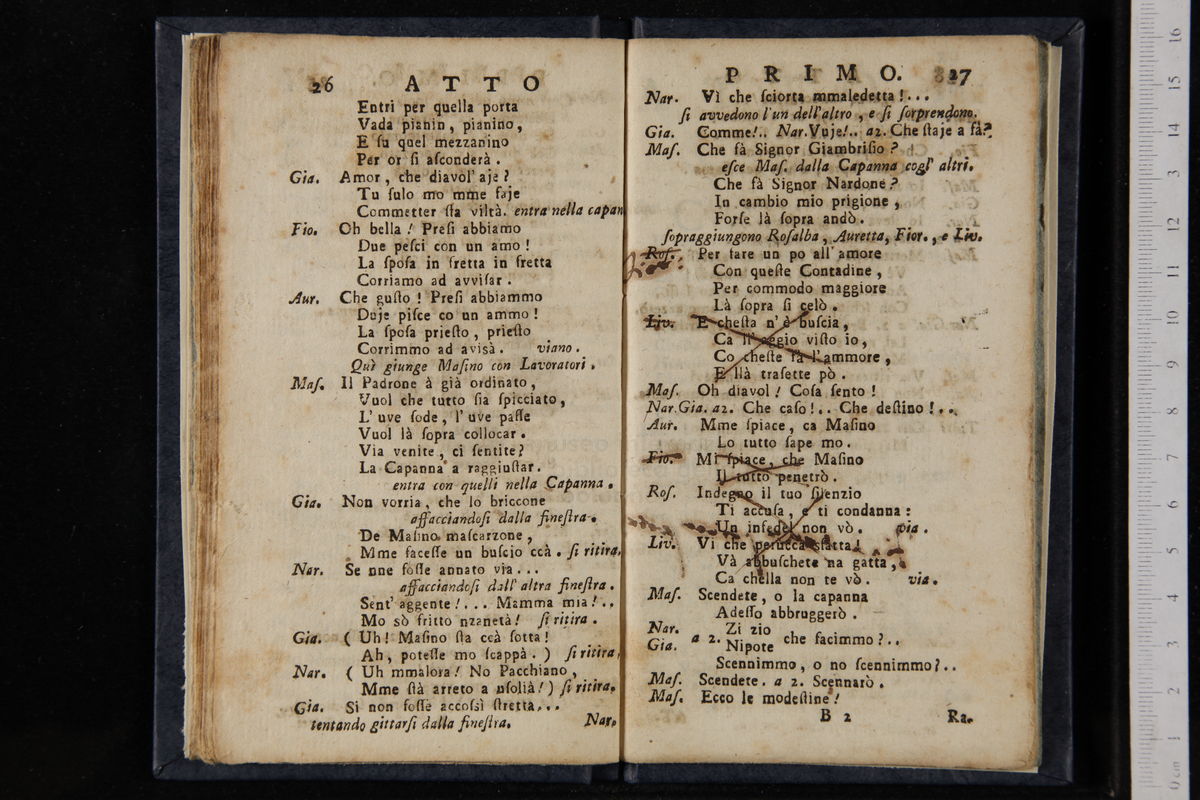 26 ATTO
Entri per quella porta
Vada pianin, pianino,
E ſu quel mezzanino
Per or ſi aſconderà.
Gia. Amor, che diavol' aje?
Tu ſulo mo mme faje
Commetter ſta viltà. entra nella capan
Fio. Oh bella! Preſi abbiamo
Due peſci con un amo!
La ſpoſa in fretta in fretta
Corriamo ad avviſar.
Aur. Che guſto! Preſi abbiammo
Duje piſce co un ammo!
La ſpoſa prieſto, prieſto
Corrimmo ad avisà. viano.
Quì giunge Maſino con Lavoratori.
Maſ. Il Padrone à già ordinato,
Vuol che tutto ſia ſpicciato,
L' uve ſode, l' uve paſſe
Vuol là ſopra collocar.
Via venite, ci ſentite?
La Capanna a raggiuſtar.
entra con quelli nella Capanna.
Gia. Non vorria, che lo briccone
affacciandoſi dalla fineſtra.
De Maſino maſcarzone,
Mme faceſſe un buſcio ccà. ſi ritira.
Nar. Se nne foſſe annato via...
affacciandoſi dall' altra fineſtra.
Sent' aggente!... Mamma mia!..
Mo sò fritto nzanetà! ſi ritira.
Gia. (Uh! Maſino ſta ccà ſotta!
Ah, poteſſe mo ſcappà.) ſi ritira,
Nar. (Uh mmalora! No Pacchiano,
Mme ſtà arreto a uſolià!) ſi ritira.
Gia. Si non foſſe accoſsì ſtretta...
tentando gittarſi dalla fineſtra. Nar.
PRIMO. 27
Nar. Vì che ſciorta mmaledetta!...
ſi avvedono l'un dell'altro, e ſi ſorprendono.
Gia. Comme!.. Nar. Vuje!.. a 2. Che ſtaje a fà?
Maſ. Che fà Signor Giambriſio?
eſce Maſ. dalla Capanna cogl' altri.
Che fà Signor Nardone?
In cambio mio prigione,
Forſe là ſopra andò.
ſopraggiungono Roſalba, Auretta, Fior., e Liv.
Roſ. Per fare un po all' amore
Con queſte Contadine,
Per commodo maggiore
Là ſopra ſi celò.
Liv. E cheſta n' è buſcia,
Ca ll' aggio viſto io,
Co cheſte fà l' ammore,
E llà traſette pò.
Maſ. Oh diavol! Coſa ſento!
Nar. Gia. a 2. Che caſo!.. Che deſtino!..
Aur. Mme ſpiace, ca Maſino
Lo tutto ſape mo.
Fio. Mi ſpiace, che Maſino
Il tutto penetrò.
Roſ. Indegno il tuo ſilenzio
Ti accuſa, e ti condanna:
Un infedel non vò. via.
Liv. Vi che perucca sfatta!
Và abbuſchete na gatta,
Ca chella non te vò. via.
Maſ. Scendete, o la capanna
Adeſſo abbruggerò.
Nar. Zi zio
Gia. a 2. Nipote che facimmo?..
Scennimmo, o no ſcennimmo?..
Maſ. Scendete. a 2. Scennarò.
Maſ. Ecco le modeſtine!
B 2 Ra-